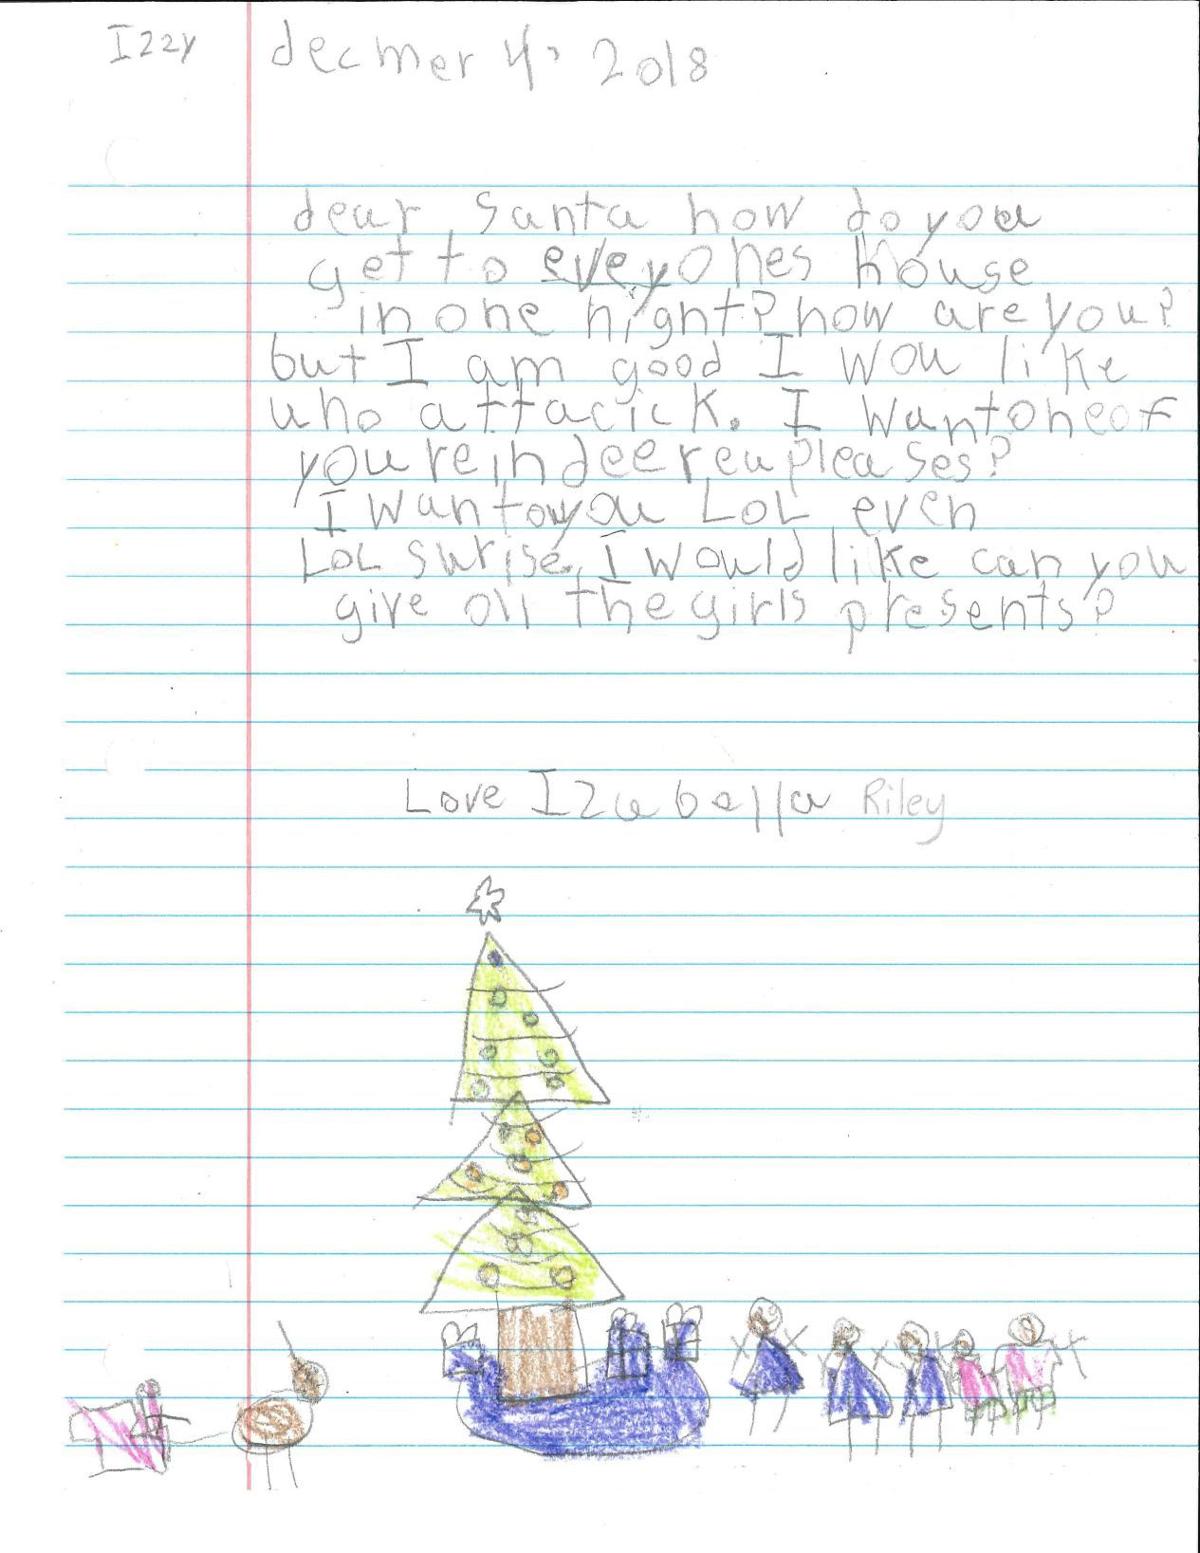 Izzy
decmer 4, 2018
dear santa how do you
get to eveyones house
in one night? how are you?
but I am good I wou like
uno attacick. I want one of
you reindeer pleases?
I want you LOL even
LOL surise, I would like can you
give all the girls presents?
Love Izabella Riley